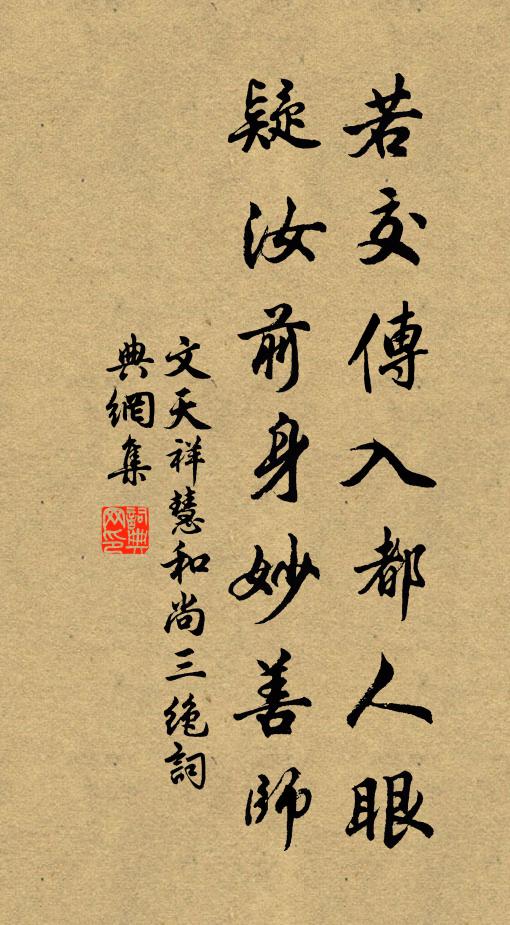 若交傳入都人眼
疑汝前身妙善師
文天祥慧和尚三絶詞
典網集
詞典網印